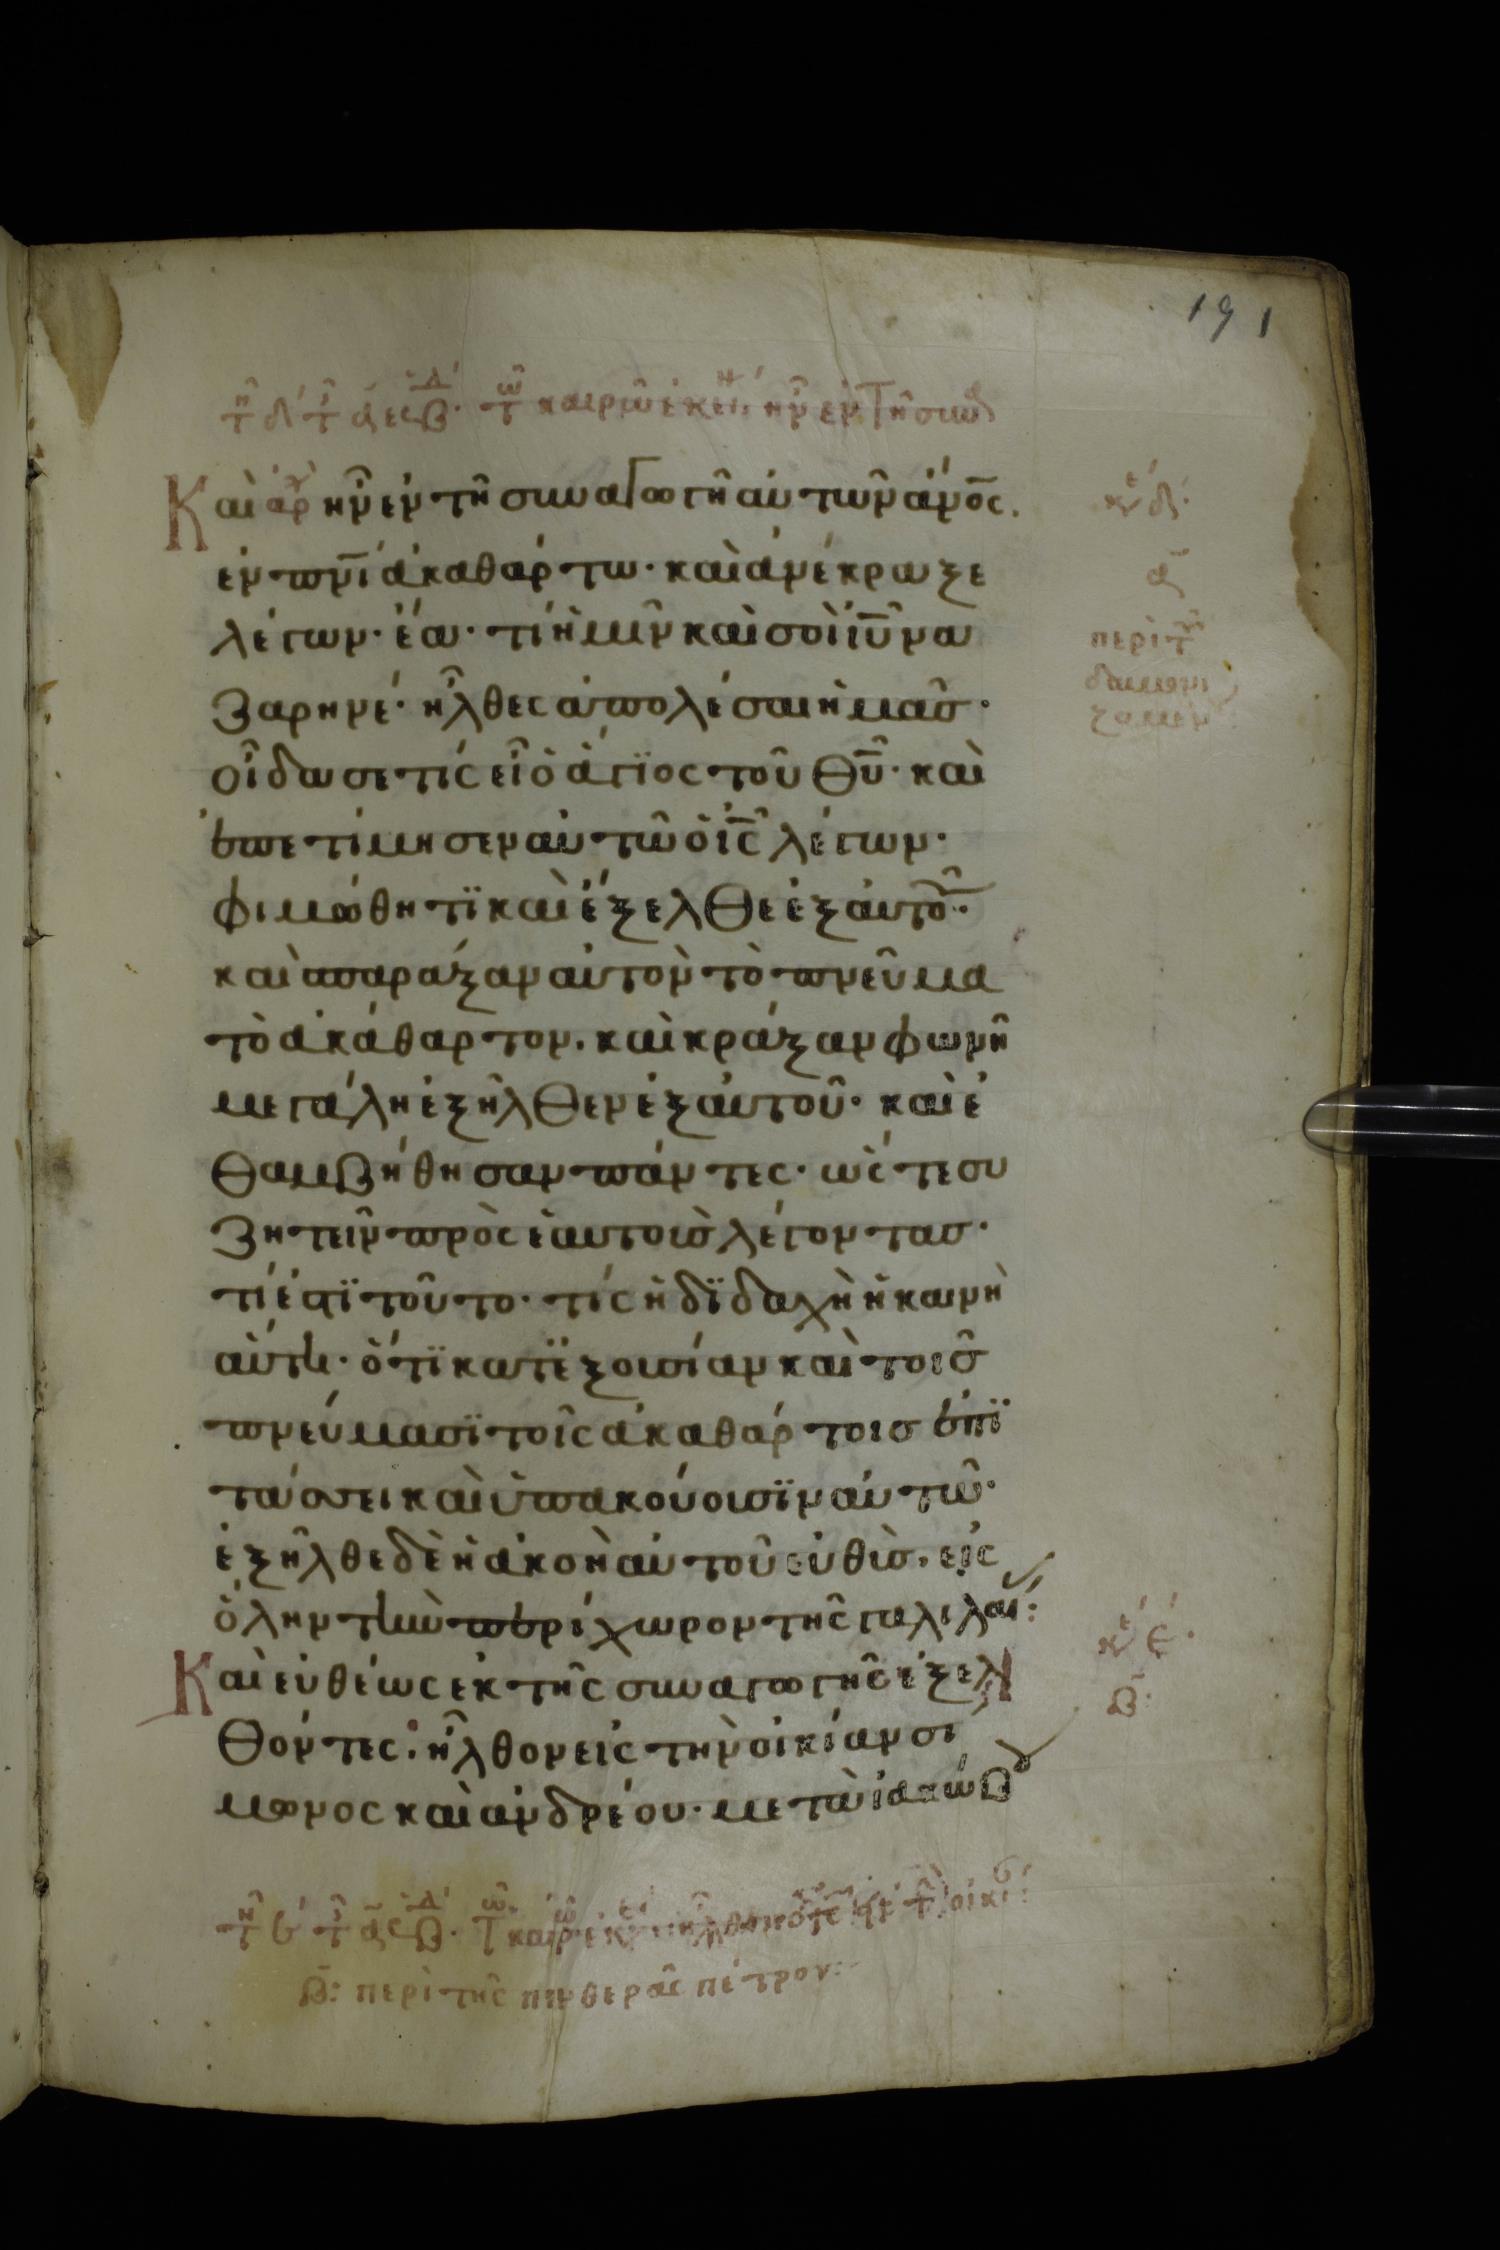 191
Καὶ ἀρ ἦν ἐν τῆ συναγωγῆ αὐτῶν ἄνο̅ς.
ἐν πνι̅ ἀκαθάρτω· καὶ ἀνέκραξε
λέγων· ἔα· τί ἡμῖν καὶ σοὶ ιυ̅ να
ζαρηνέ· ἦλθες ἀπολέσαι ἡμᾶσ·
οἶδα σε τίς εἶ ὁ ἅγϊος τοῦ θυ̅· καὶ
ἐπετίμησεν αὐτῶ ὁ ις̅ λέγων·
φιμώθητϊ καὶ ἔξελθε ἐξ αὐτοῦ·
καὶ σπαράξαν αυτὸν τὸ πνεῦμα
τὸ ἀκάθαρτον. καὶ κράξαν φωνῆ
μεγάλη ἐξῆλθεν ἐξ ἀυτοῦ· καὶ ἐ
θαμβήθησαν πάντες· ὥς τε συ
ζητεῖν πρὸς ἑαυτοὺσ λέγοντασ·
τί ἐστϊ τοῦτο· τίς ἡ δϊδαχὴ ἡ καινὴ
αὕτη· ὅτϊ κατ' ἐξουσίαν καὶ τοῖσ
πνεύμασϊ τοῖς ἀκαθάρτοισ ἐπϊ
τάσσει καὶ ὑπακούουσϊν αὐτῶ·
ἐξῆλθε δὲ ἡ ἀκοὴ αὐτοῦ εὐθὺσ. εἰς
ὅλην τὴν περίχωρον τῆς γαλιλαί:
Καὶ εὐθέως ἐκ τῆς συναγωγῆς ἐξελ
θόντες· ἦλθον εἰς τὴν οἰκίαν σί
μωνος καὶ ἀνδρέου· μετὰ ἰακώβου
κε δ·
α̅
περὶ τοῦ
δαιμονι
ζομέν
κε ε·
β̅·
β̅: περὶ τῆς πενθερᾶς πέτρου: